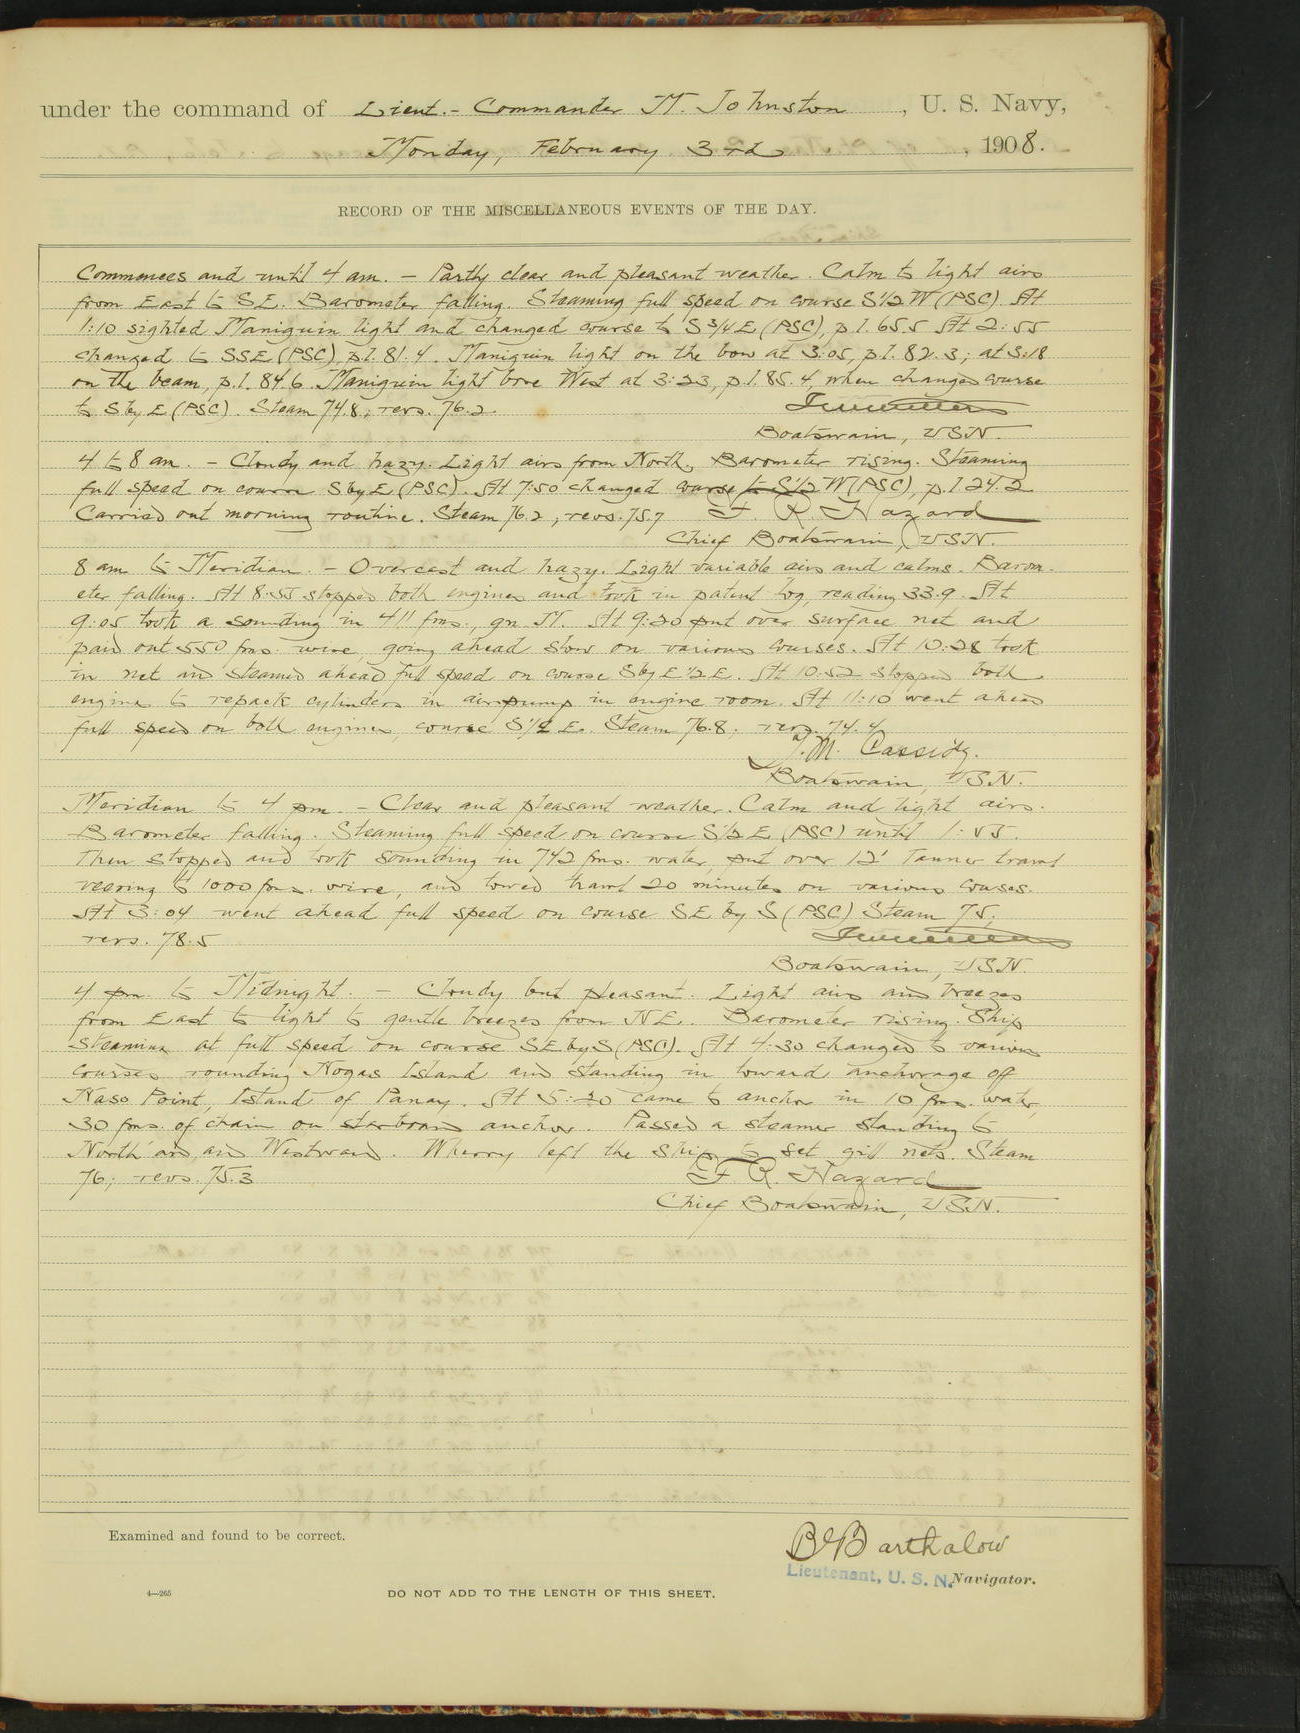 under the command of Lieut.- Commander M. Johnston, U. S. Navy,
Monday, February 3rd, 1908.
RECORD OF THE MISCELLANEOUS EVENTS OF THE DAY.
Commences and until 4 am. - Partly clear and pleasant weather. Calm to light airs
from East to SE. Barometer falling. Steaming full speed on course S1/2 W (PSC). At
1:10 sighted Maniguin light and changed course to S 3/4 E (PSC), p.l. 65.5 At 2:55
changed to SSE (PSC) p.l. 81.4. Maniguin light on the bow at 3:05, p.l. 82.3; at 3:18
on the beam, p.l. 84.6. Maniguin light bore West at 3:23, p.l. 85.4, when changed course
to S by E (PSC). Steam 74.8; revs. 76.2
Boatswain, USN.
4 to 8 am. - Cloudy and hazy. Light airs from North. Barometer rising. Steaming
full speed on course S by E (PSC). At 7:50 changed course to S1/2 W (PSC), p.l. 24.2
Carried out morning routine. Steam 76.2; revs. 75.7 F. R. Hazard
Chief Boatswain, USN.
8 am to Meridian. - Overcast and hazy. Light variable airs and calms. Barom-
eter falling. At 8:55 stopped both engines and took in patent log, reading 33.9. At
9:05 took a sounding in 411 fms., gn. M. At 9:20 put over surface net and
paid out 550 fms. wire, going ahead slow on various courses. At 10:28 took
in net and steamed ahead full speed on course S by E 1/2 E. At 10:52 stopped both
engines to repack cylinders in air pump in engine room. At 11:10 went ahead
full speed on both engines, course S 1/2 E. Steam 76.8; revs. 74.4
M. Cassidy.
Boatswain, USN.
Meridian to 4 pm. - Clear and pleasant weather. Calm and light airs.
Barometer falling. Steaming full speed on course S 1/2 E (PSC) until 1:55.
Then stopped and took sounding in 742 fms. water, put over 12' Tanner trawl
veering to 1000 fms. wire, and towed trawl 20 minutes on various couses.
At 3:04 went ahead full speed on course SE by S (PSC) Steam 75;
revs. 78.5
Boatswain, USN.
4 pm. to Midnight. - Cloudy but pleasant. Light airs and breezes
from East to light to gentle breezes from NE. Barometer rising. Ship
steaming at full speed on course SE by S (PSC). At 4:30 changed to various
courses rounding Nogas Island and standing in toward anchorage off
Naso Point, Island of Panay. At 5:20 came to anchor in 10 fms. water,
30 fms. of chain on starboard anchor. Passed a steamer standing to
North'ard and Westward. Wherry left the ship to set gill nets. Steam
76; revs. 75.3 F. R. Hazard
Chief Boatswain, USN.
Examined and found to be correct.
Barthalow
Lieutenant, U. S. N. Navigator.
4—265
DO NOT ADD TO THE LENGTH OF THIS SHEET.